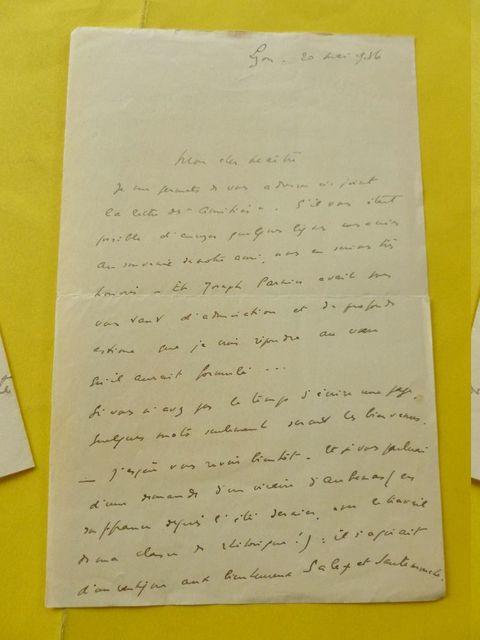 Lyon. 20 mai 1936
Mon cher Maître
Je me permets de vous adresser ci-joint
la lettre des "Amitiés". S'il vous était
possible d'envoyer quelques lignes
au souvenir de notre ami, nous en serions très
honorés - Et Joseph avait pour
vous tant d'admiration et de profonde
estime que je crois répondre au vœu
qu'il aurait formulé ...
Si vous n'avez pas le temps d'écrire une page,
quelques mots seulement seront les bienvenus.
— J'espère vous revoir bientôt. Et je vous parlerai
d'une demande d'un vicaire d'Aubenas (en
souffrance depuis l'été dernier, avec le travail
de ma classe de rhétorique!) : il s'agirait
d'un aux bienheureux Salez et Saultemouche.